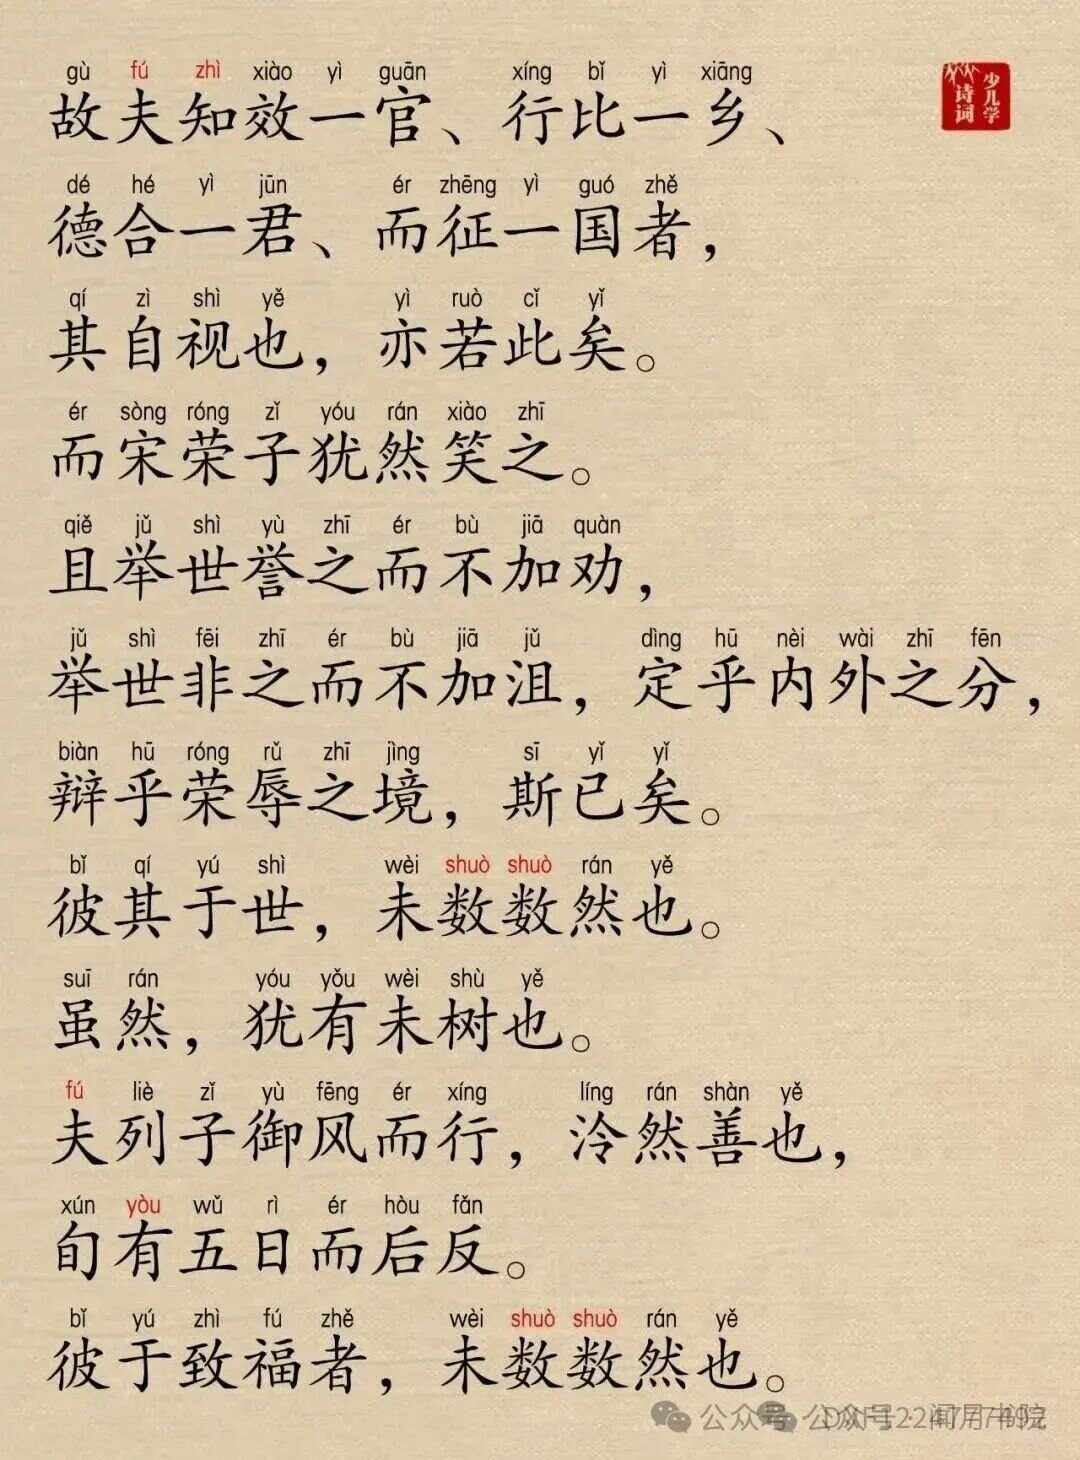 gù fú zhì xiào yì guān xíng bǐ yì xiāng
故夫知效一官、行比一乡、
少儿学诗词
dé hé yì jūn ér zhēng yì guó zhě
德合一君、而征一国者，
qí zì shì yě yì ruò cǐ yǐ
其自视也，亦若此矣。
ér sòng róng zǐ yóu rán xiào zhī
而宋荣子犹然笑之。
qiě jǔ shì yù zhī ér bù jiā quàn
且举世誉之而不加劝，
jǔ shì fēi zhī ér bù jiā jǔ dìng hū nèi wài zhī fēn
举世非之而不加沮，定乎内外之分，
biàn hū róng rǔ zhī jìng sī yǐ yǐ
辩乎荣辱之境，斯已矣。
bǐ qí yú shì wèi shuò shuò rán yě
彼其于世，未数数然也。
suī rán yóu yǒu wèi shù yě
虽然，犹有未树也。
fú liè zǐ yù fēng ér xíng líng rán shàn yě
夫列子御风而行，泠然善也，
xún yòu wǔ rì ér hòu fǎn
旬有五日而后反。
bǐ yú zhì fú zhě wèi shuò shuò rán yě
彼于致福者，未数数然也。
公众号 公众号